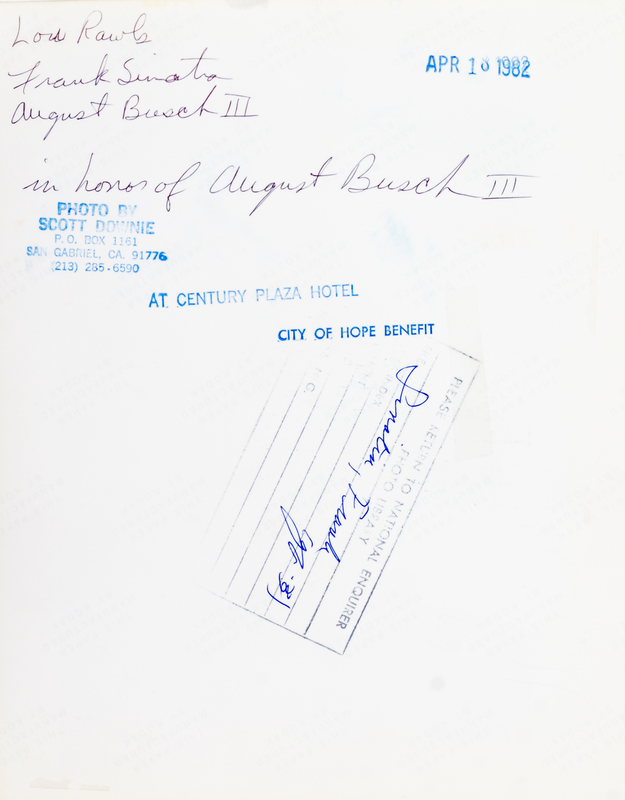 Lou Rawls
APR 10 1982
Frank Sinatra
August Busch III
in honor of August Busch III
PHOTO BY
SCOTT DOWNIE
P.O. BOX 1161
SAN GABRIEL, CA. 91776
(213) 285-6590
AT CENTURY PLAZA HOTEL
CITY OF HOPE BENEFIT
PLEASE RETURN TO NATIONAL ENQUIRER
PHOTO LIBRARY
Sinatra, Frank